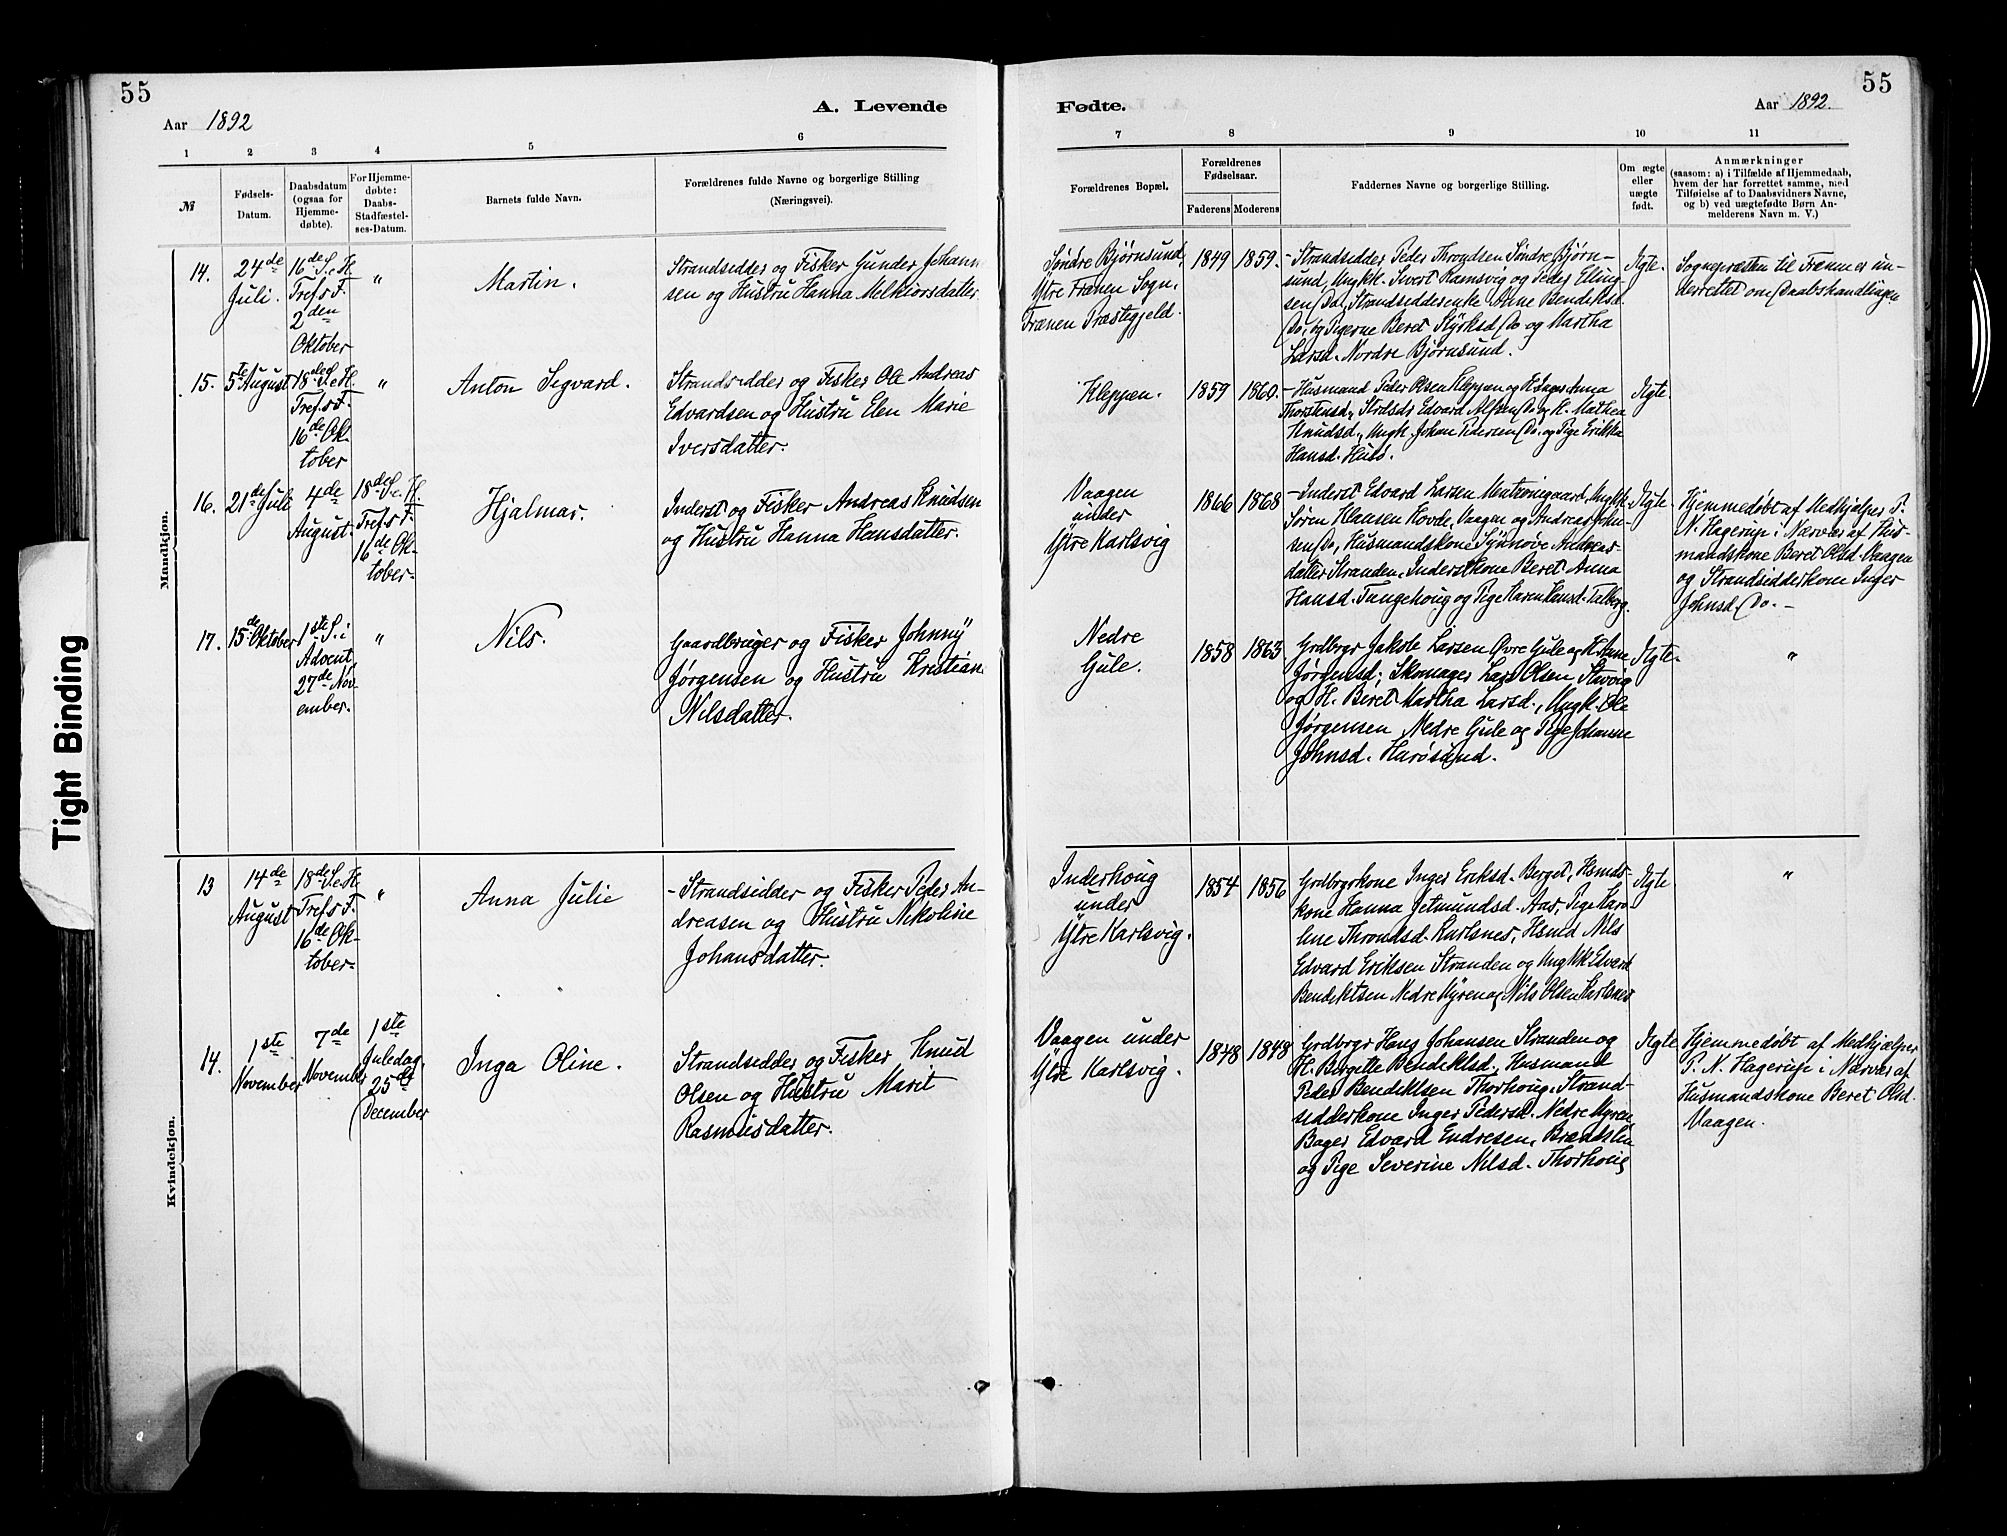 55
Aar 1892
A. Levende
1
2
3
4
5
6
№
Fødsels-
Datum.
Daabsdatum
(ogsaa for
Hjemme-
døbte).
For Hjemme-
døbte:
Daabs-
Stadfæstel-
ses-Datum.
Barnets fulde Navn.
Forældrenes fulde Navne og borgerlige Stilling
(Næringsvei).
Mandkjøn.
14.
24de
Juli.
16de S. e. H.
Tref. s F.
2den
Oktober
"
Martin.
Strandsidder og Fisker Gunder Johann
sen og Hustru Hanna Melkiorsdatter.
15.
5te August
18de S. e. H.
Tref. s F.
16de Ok-
tober
"
Anton Segvard.
Strandsidder og Fisker Ole Andreas
Edvardsen og Hustru Elen Marie
Iversdatter.
16.
21de Juli
4de
August.
18de S. e. H.
Tref. s F.
16de Ok-
tober.
Hjalmar.
Inderst og Fisker Andreas Knudsen
og Hustru Hanna Hansdatter.
17.
15de Oktober
1ste S. i
Advent,
27de Nov
ember.
"
Nils.
Gaardbruger og Fisker Johnny
Jørgensen og Hustru Kristian
Nilsdatter.
Kvindekjøn.
13
14de
August
18de S. e. H.
Tref. s F.
16de Ok-
tober.
"
Anna Julie
- Strandsidder og Fisker Peder An-
dreasen og Hustru Nikoline
Johansdatter.
14.
1ste
November
7de
November
1ste
Juledag,
25de
December
Inga Oline.
Strandsidder og Fisker Knud
Olsen og Hustru Marit
Rasmusdatter.
Tight Binding
Fødte.
Aar 1892.
55
7
8
9
10
11
Forældrenes Bopæl.
Forældrenes
Fødselsaar.
Faderens
Moderens
Faddernes Navne og borgerlige Stilling.
Om ægte
eller
uægte
født.
Anmærkninger
(saasom: a) i Tilfælde af Hjemmedaab,
hvem der har forrettet samme, med
Tilføielse af to Daabsvidners Navne,
og b) ved uægtefødte Børn An-
melderens Navn m. V.)
Søndre Bjørnsund,
Ytre Frænen Sogn,
Frænen Præstegjeld.
1849
1859.
- Strandsidder Peder Throndsen Søndre Bjørn-
sund, Ungkk. Sivert Ramsvig og Peder Elling-
sen Do, Strandsidderenke Anne Bendiksd.
Do, og Pigerne Beret Styrksd. Do og Martha
Larsd. Nordre Bjørnsund.
Ægte.
Sognepræsten til Frænen er un-
derrettet om Daabshandlingen
Kleppen.
1859
1860.
- Husmand Peder Olsen Kleppen og Anna
Edvard Do. og H. Mathea
Knudsd., Ungk. Johan Pedersen Do. og Pige Erikka
Hansd. Husø.
Ægte.
Vaagen
under
Ytre Karlsvig
1866
1868
- Inderst Edvard Larsen Ungkk.
Søren Klausen Hovde, Vaagen og Andreas John-
sen Do, Husmandskone Synnøve Andreas-
datter Stranden, Inderstkone Beret Anna
Hansd. Tungehoug og Pige Karen Hansd. Talberg.
Ægte.
Hjemmedøbt af Medhjælper P.
N. Hagerup i Nærvær af Hus-
mandskone Beret Olsd. Vaagen
og Strandsidderkone Inger
Johnsd. Do. -
Nedre
Gule.
1858
1863
Grdbrgr Jakob Larsen Øvre Gule og H. Anne
Jørgensd; Skomager Lars Olsen Stavig
og H. Beret Martha Larsd., Ungk. Ole
Jørgensen Nedre Gule og Pige Johanne
Johnsd. Harøsund.
Ægte.
"
Inderhoug
under
Ytre Karlsvig.
1854
1856
Grdbrgrkone Inger Eriksd. Berget, Hsmds-
kone Hanna Jetmundsd. Aas, Pige Karo-
line Throndsd. Karlsnes, Hsmd Nils
Edvard Eriksen Stranden og Ungkk Edvard
Bendiktsen Nedre Myren og Nils Olsen Karlsnes
Ægte
"
Vaagen under
Ytre Karlsvig.
1848
1848
Grdbrgr Hans Johansen Stranden og
H. Bergitte Bendiktsd. Husmand
Peder Bendiktsen Thorhoug, Strand-
sidderkone Inger Pedersd. Nedre Myren,
Bager Edvard Endresen,
og Pige Severine Nilsd. Thorhoug
Ægte
Hjemmedøbt af Medhjælper
P. N. Hagerup i Nærvær af
Husmandskone Beret Olsd.
Vaagen.